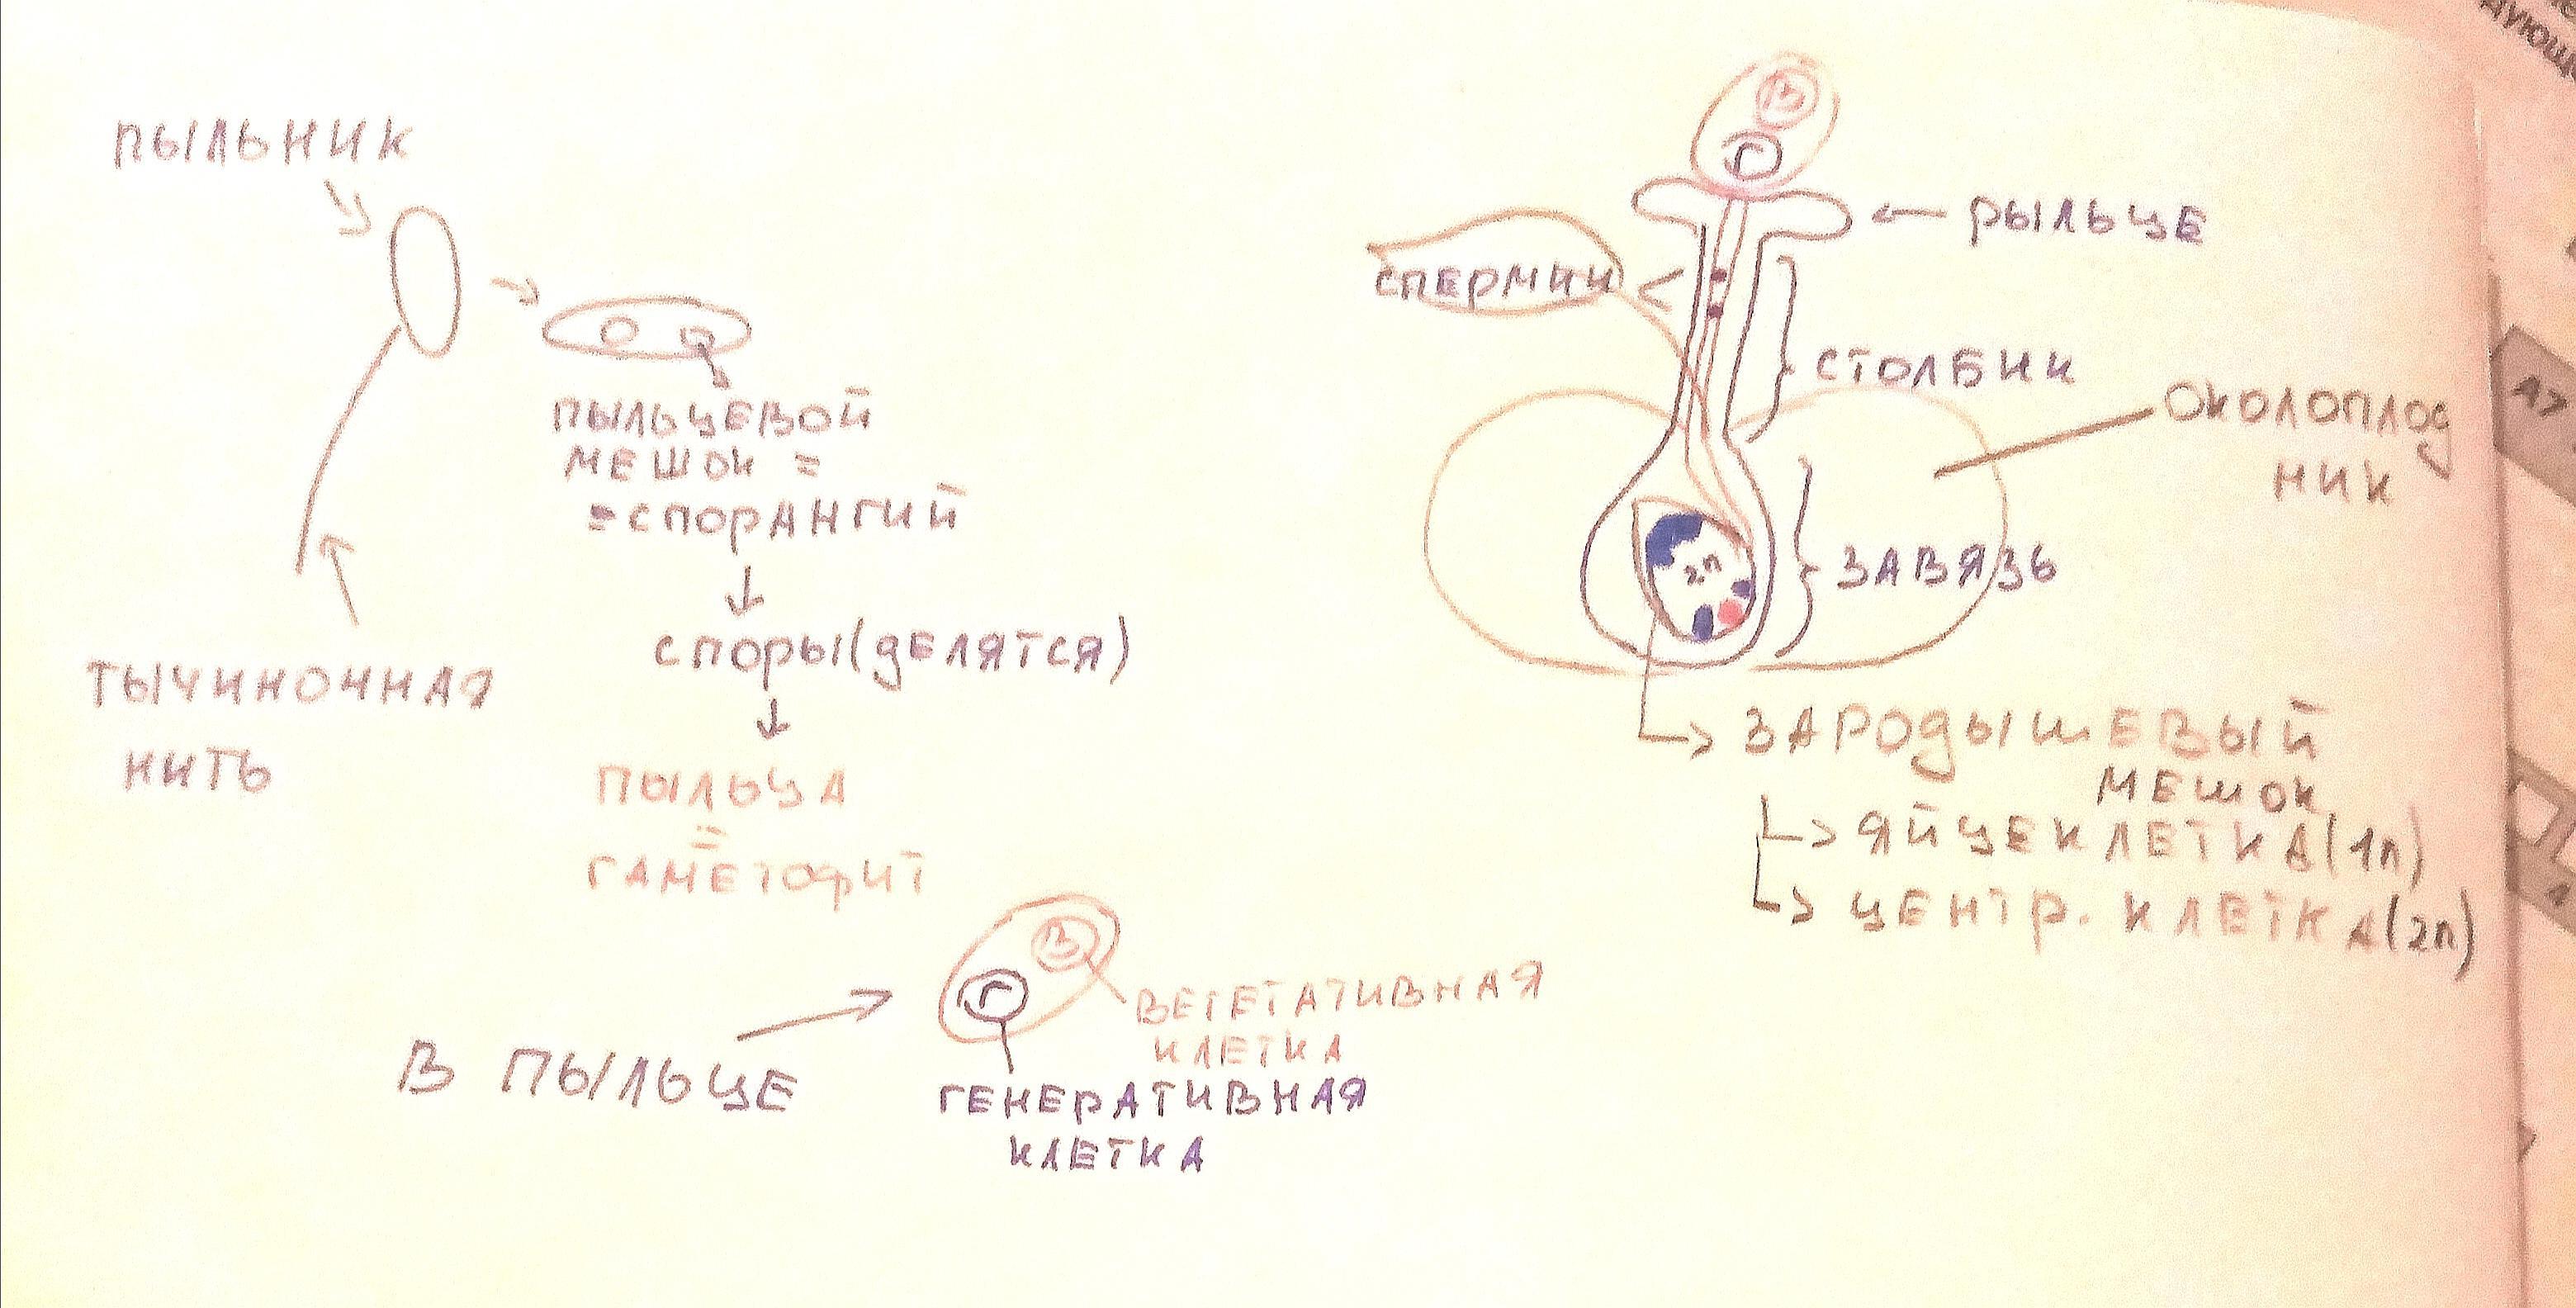 ПЫЛЬНИК
ПЫЛЬЦЕВОЙ
МЕШОК =
=СПОРАНГИЙ
СПОРЫ(ДЕЛЯТСЯ)
ПЫЛЬЦА
=
ГАМЕТОФИТ
ТЫЧИНОЧНАЯ
НИТЬ
В ПЫЛЬЦЕ
В
Г
ВЕГЕТАТИВНАЯ
КЛЕТКА
ГЕНЕРАТИВНАЯ
КЛЕТКА
В
Г
РЫЛЬЦЕ
СПЕРМИИ
СТОЛБИК
ОКОЛОПЛОД
НИК
2n
ЗАВЯЗЬ
ЗАРОДЫШЕВЫЙ
МЕШОК
ЯЙЦЕКЛЕТКА(1n)
ЦЕНТР. КЛЕТКА(2n)